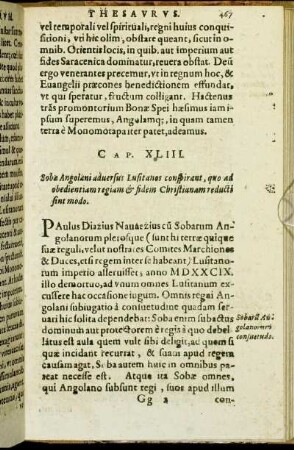 THESAVRVS. 467
vel temporali vel spirituali, regni huius conqui-
sitioni, vti hic olim, obstare queant, sicut in o-
mnib. Orientis locis, in quib. aut imperium aut
fides Saracenica dominatur, reuera obstat. Deũ
ergo venerantes precemur, vt in regnum hoc, &
Euangelii præcones benedictionem effundat,
vt qui speratur, fructum colligant. Hactenus
trãs promontorium Bonæ Spei hæsimus iam i-
psum superemus, Angolamq;, in quam camen
terra è Monomotapa iter patet, adeamus.
CAP. XLIII.
Sobæ Angolani aduersus Lusitanos conspirant, quo ad
obedientiam regiam & fidem Christianam reducti
sint modo.
PAulus Diazius Nauaezius cũ Sobarum An-
golanorum plerosque (sunt hi terræ quique
suæ reguli, velut nostrates Comites Marchiones
& Duces, etsi regem inter se habeant) Lusitano-
rum imperio asseruisset, anno MDXXCIX.
illo demortuo, ad vnum omnes Lusitanum ex-
cussere hac occasione iugum. Omnis regni An-
golani subiugatio à consuetudine quadam ser-
uari hic solita dependebat: Soba enim subactus
dominum aut protectorem è regis à quo debel-
latus est aula quem vult sibi deligit, ad quem si
quæ incidant recurrat, & suas apud regem
causam agat, Sobæ autem huic in omnibus pa-
reat necesse est. Atque ita Sobæ omnes,
qui Angolano subsunt regi, suos apud illum
Sobarũ An-
golanorum
consuetudo.
Gg 2 con-